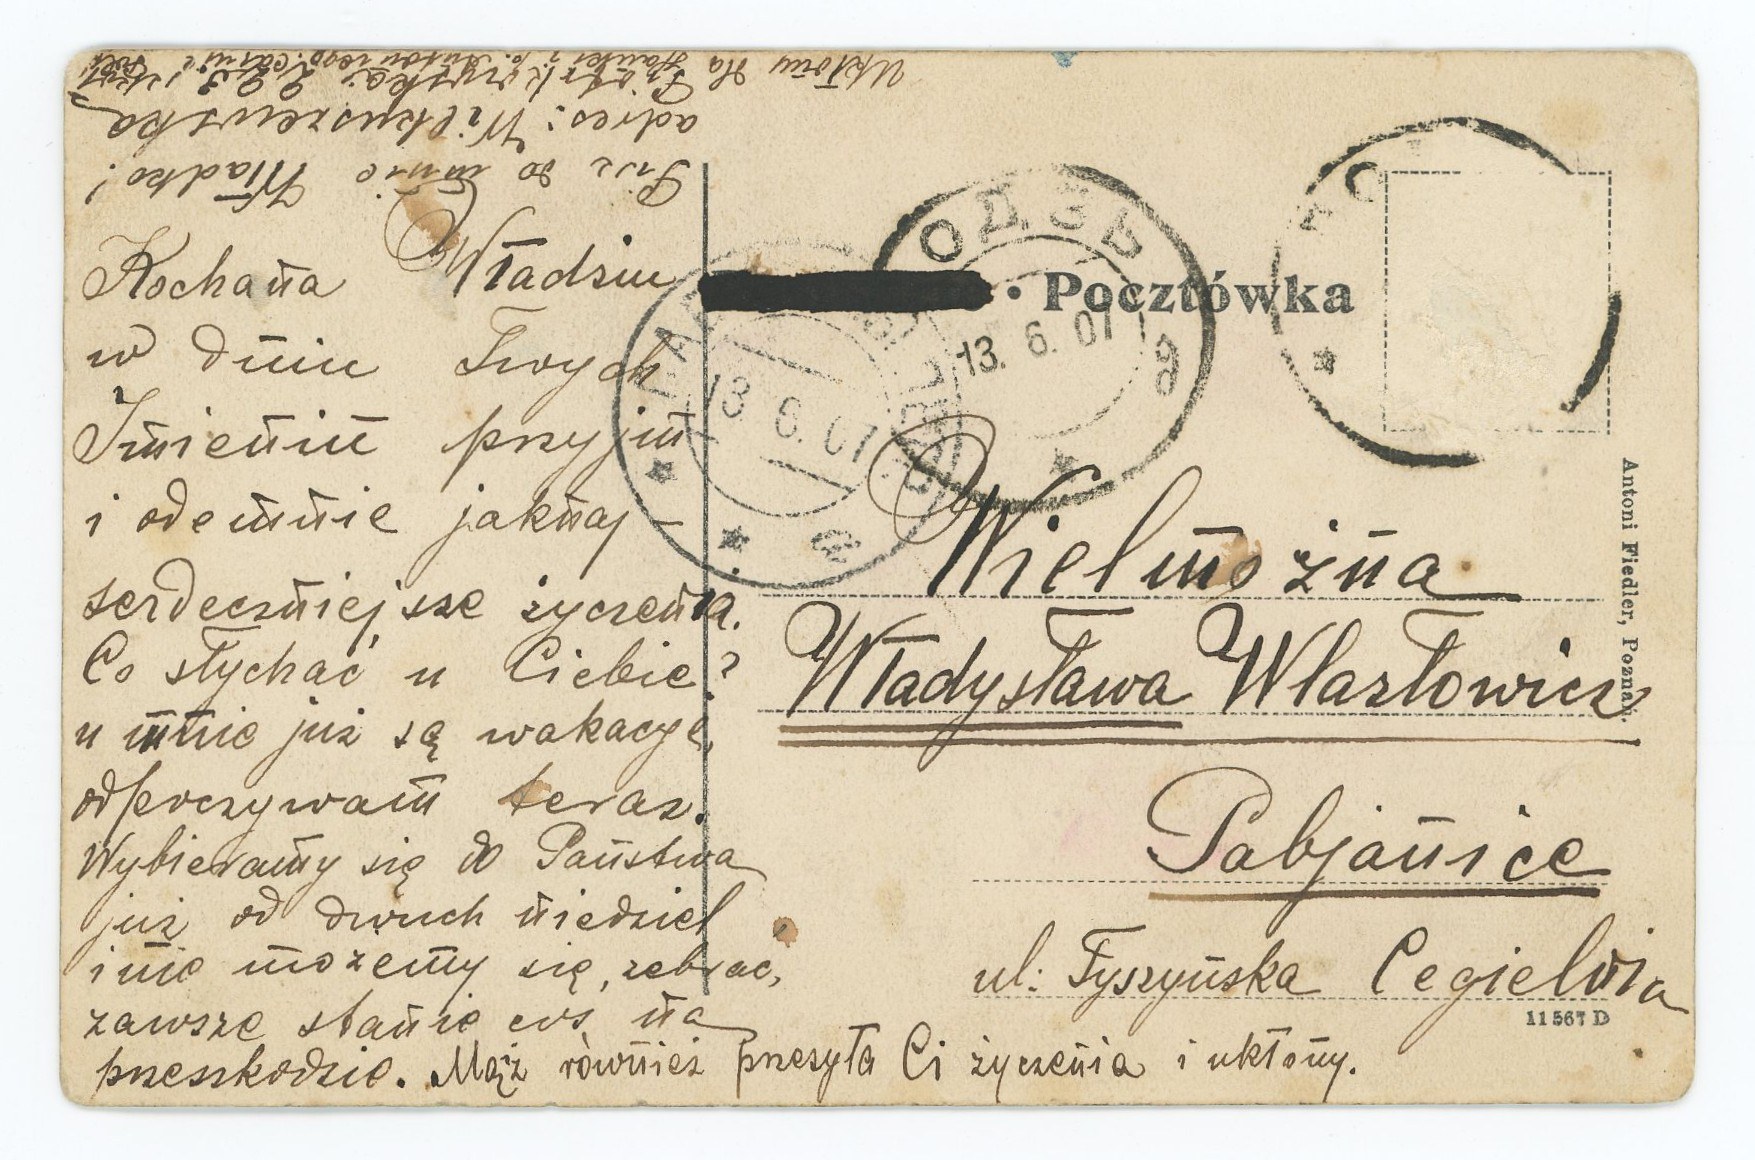 Kochana Władziu
w dniu Twych
Imienin przyjm
i odemnie jaknaj-
serdeczniejsze życzenia.
Co słychać u Ciebie?
u mnie już są wakacye,
odpoczywam teraz.
Wybieramy się do Państwa
już od dwuch niedziel
i nie możemy się zebrać,
zawsze stanie coś na
przeszkodzie. Mąż również przesyła Ci życzenia i ukłony.
Pisz do mnie Władko!
adres: Wilkuszewska
Piotrkowska 223
Ukłony dla Hanki
• Pocztówka
ОДЗЬ
13. 6. 07
13 6. 07
Wielmożna
Władysława Wlazłowicz
Pabjanice
ul: Tyszyńska Cegielnia
Antoni Fiedler, Poznań.
11567 D